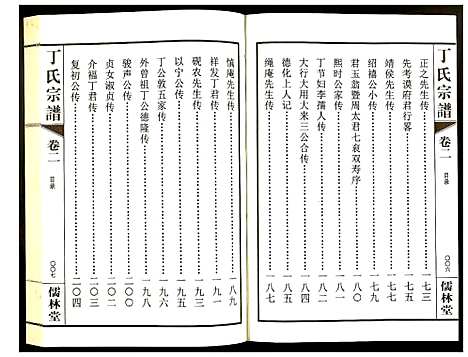 丁氏宗譜
卷二
目录
〇〇六
儒林堂
正之先生传……七三
先考谟府君行畧……七五
靖侯先生传……七七
绍禧公小传……七九
君玉翁暨周太君七袠双寿序……八〇
熙时公家传……八一
丁节妇李孺人传……八二
大行大用大来三公合传……八四
德化上人记……八六
绳庵先生传……八七
慎庵先生传……八九
祥发丁君传……九一
砚农先生传……九三
以宁公传……九五
丁公敦五家传……九六
外曾祖丁公德隆传……九八
骏声公传……一〇〇
贞女淑贞传……一〇二
介福丁君传……一〇三
复初公传……一〇四
丁氏宗譜
卷二
目录
〇〇七
儒林堂